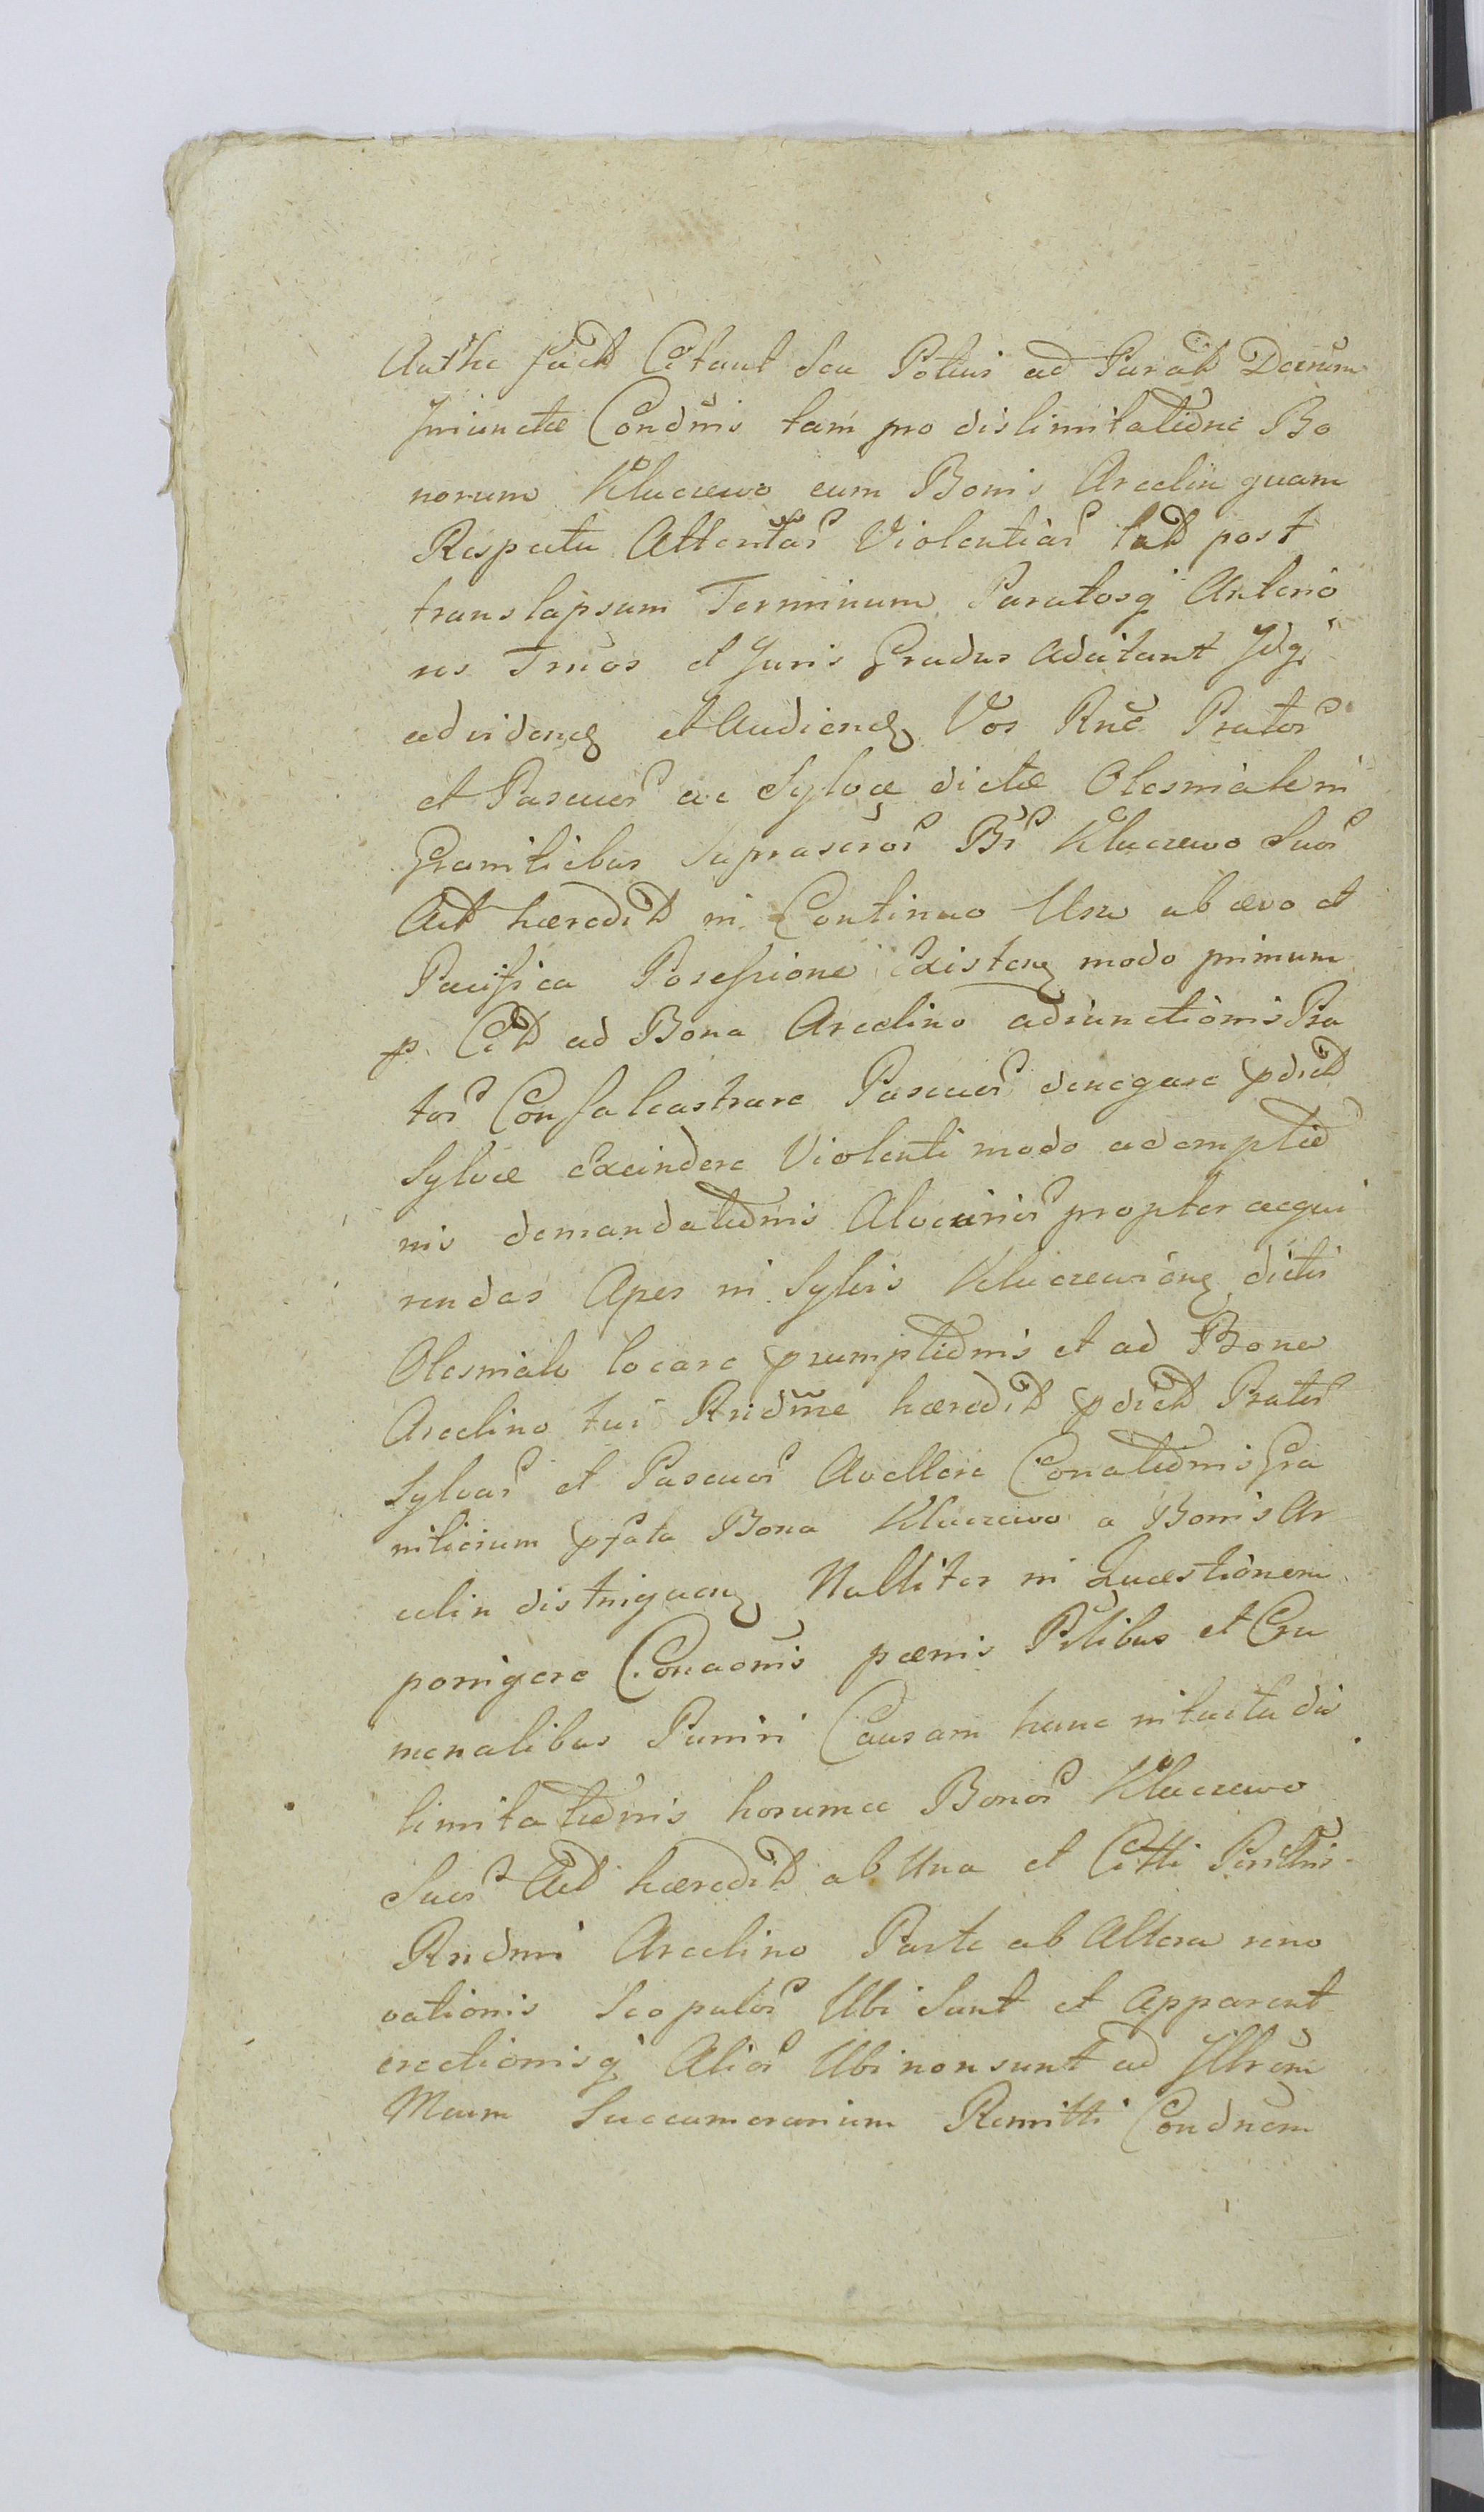 Authe fact Citant seu Potius ad Parat Decrum
Iniunctæ Condnis tam pro dislimitatiōne Bo
norum Kluczewo cum Bonis Arcelin quam
Respectu Attentar Violentiar tact post
translapsum Terminum Paratosq Anterio
res Tnios et Juris Gradus Adcitant Idq
ad videnđ et Audienđ Vos Rnē Prator
et Pascuor ac Sylvæ dictæ Olesniak in
Granitiebus suprascror Br Kluczewo Suor
Act hæredit in Continuo Usu ab ævo et
Pacifica Posessione Existen modo primum
p. Cit ad Bona Arcelino adiunctionis Pra
tor Confalcastrare Pascuor denegare pdict
Sylvæ Excindere Violenti modo ademptiō
nis demandatiōnis Alvearior propter acqui
rendas Apes in Sylvis Kluczewien dictis
Olesniak locare præmptiōnis et ad Bona
Arcelino tui Rndme hæredit pdict Prator
Sylvar et Pascuor Avellere Conatiōnis Gra
niticium pfata Bona Kluczewo a Bonis Ar
celin distinguen Nulliter in Quæstionem
porrigere Conaōnis pænis Pilibus et Cri
menalibus Puniri Causam hanc intuitu dis
limitatiōnis horumce Bonor Kluczewo
Suor Act hæredit ab Una et Citti Perillris
Rndmi Arcelino Parte ab Altera reno
vationis Scopulor Ubi Sunt et Apparent
erectionisq Alior Ubi non sunt ad Illrem
Mcum Succamerarium Remitti Condnem